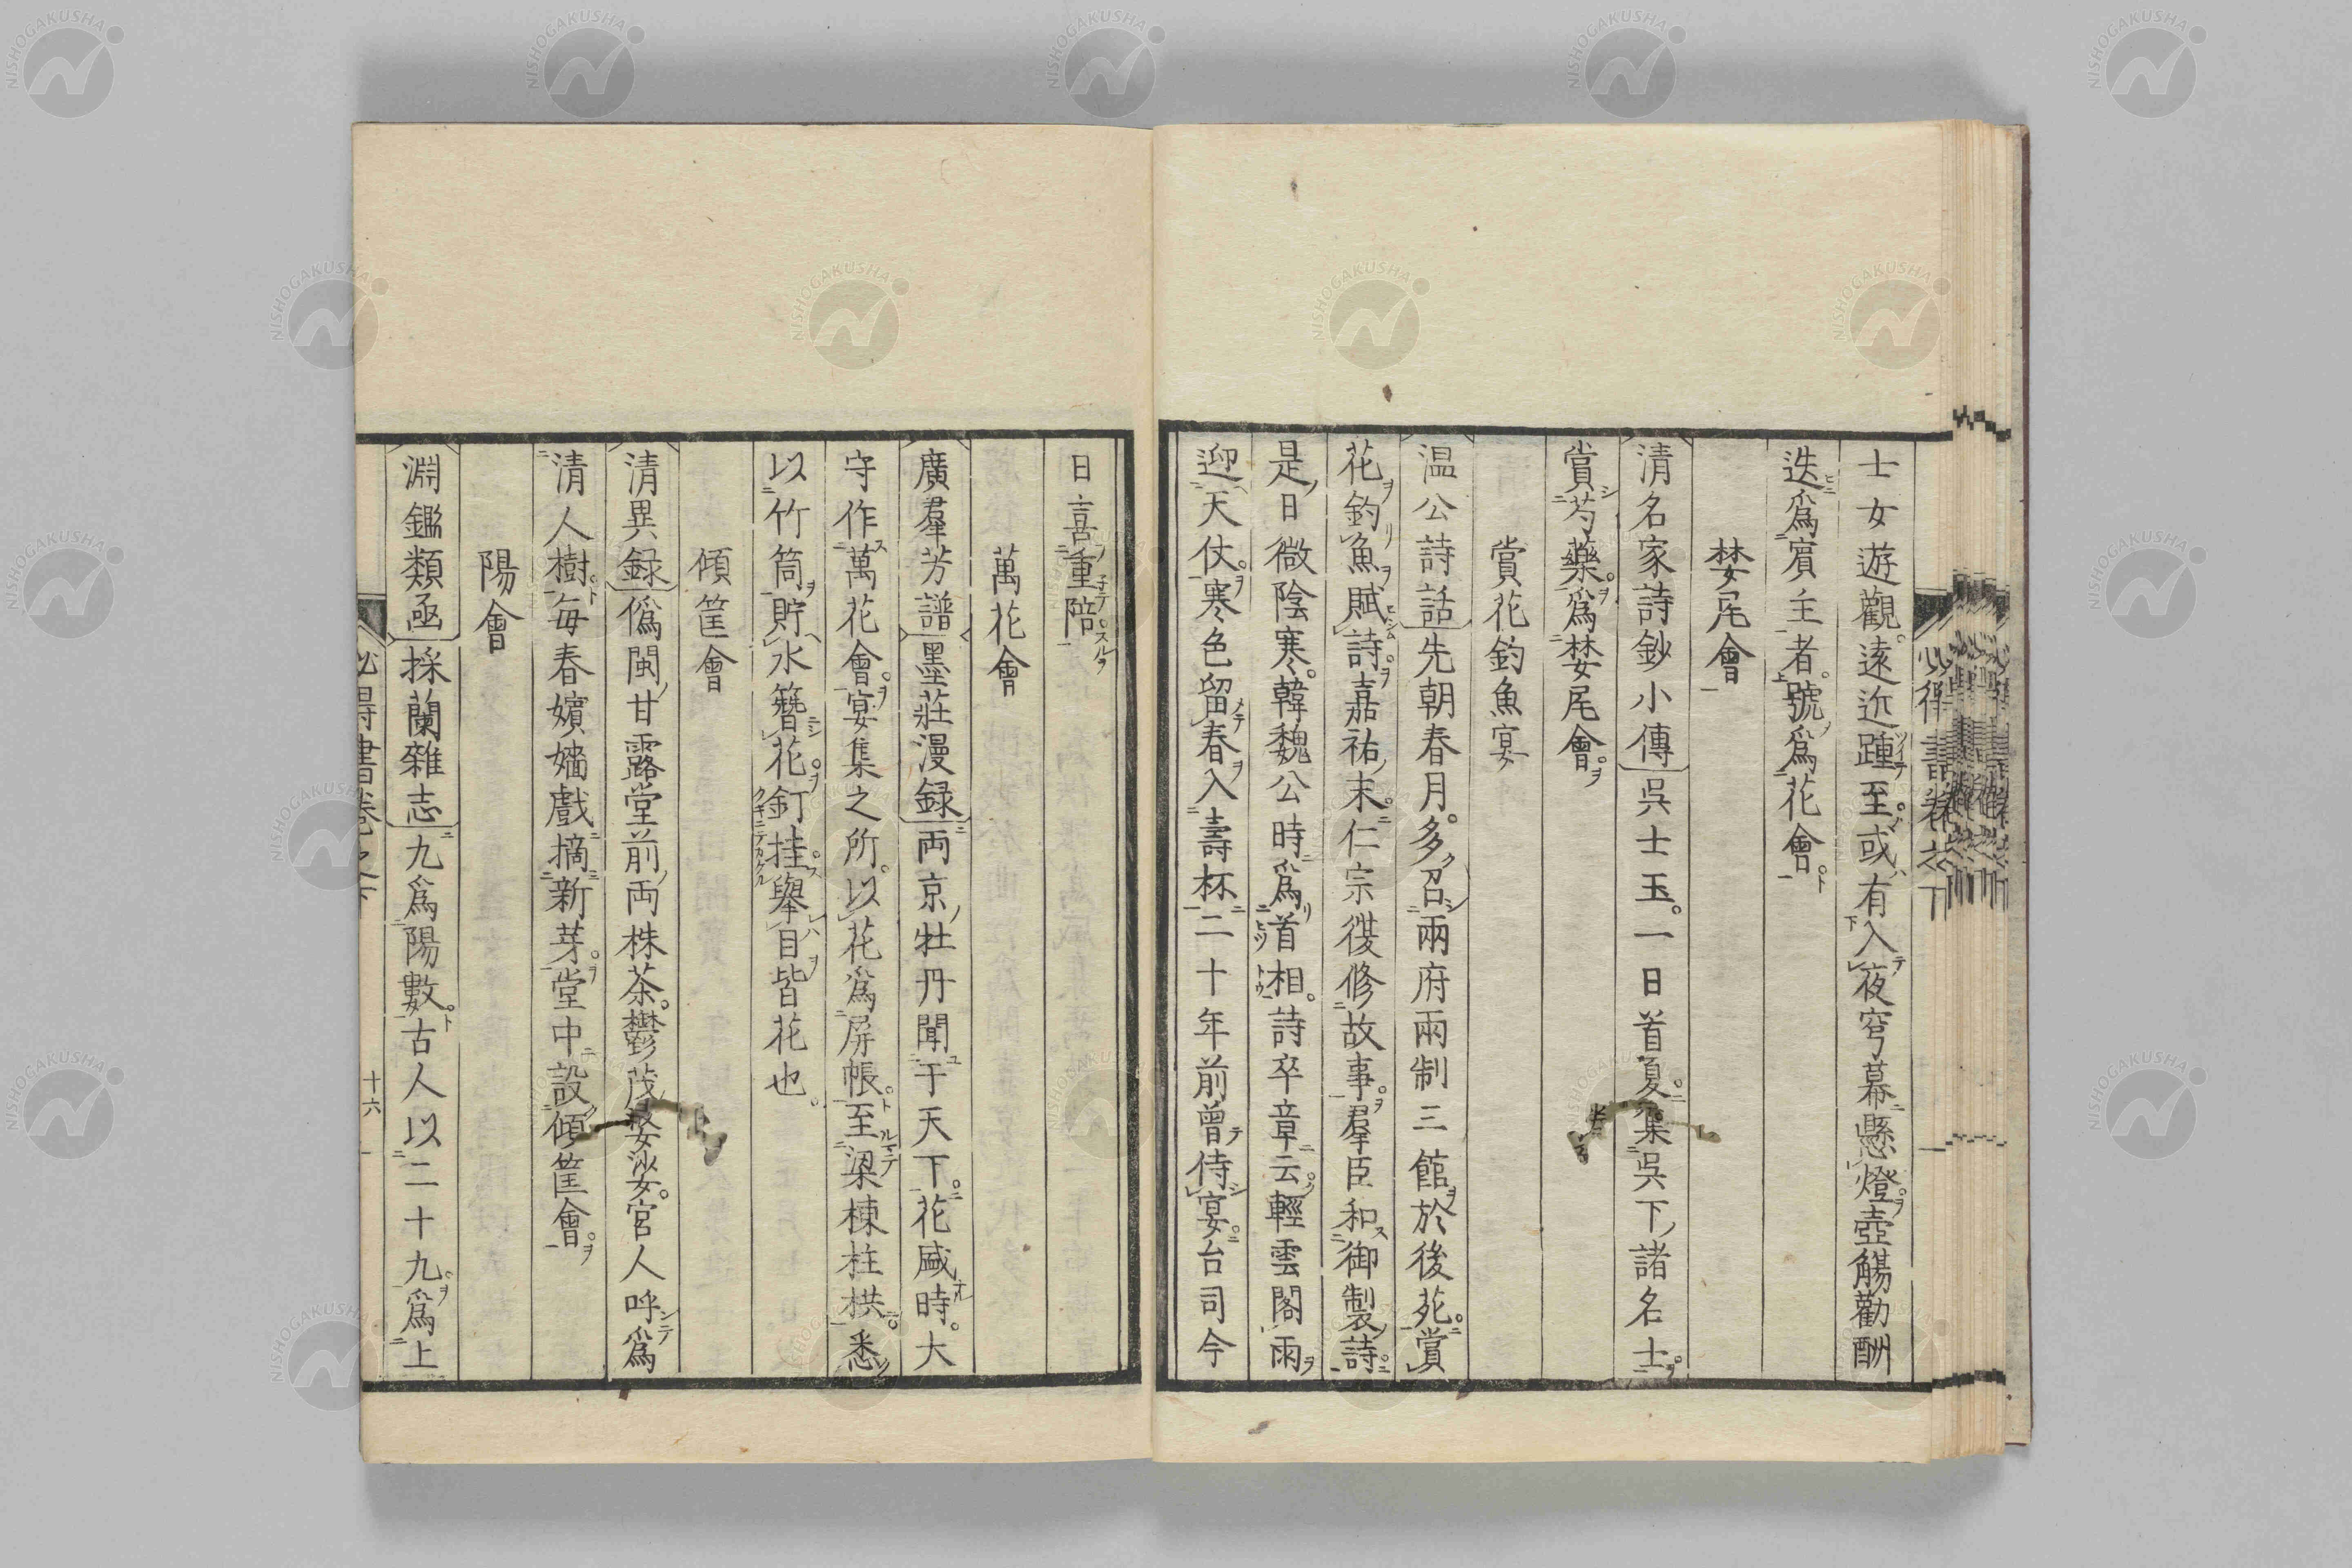 士女遊觀遠近踵至或有入夜穹幕懸燈壺觴勸酬
迭爲賓主者號爲花會
婪尾會
清名家詩鈔小傳吳士玉一日首夏集吳下諸名士
賞芍藥爲婪尾會
賞花釣魚宴
温公詩話先朝春月多召兩府兩制三館於後苑賞
花釣魚賦詩嘉祐末仁宗復修故事羣臣和御製詩
是日微陰寒韓魏公時爲首相詩卒章云輕雲閣雨
迎天仗寒色留春入壽杯二十年前曾侍宴台司今
日喜重陪
萬花會
廣羣芳譜墨莊漫録両京牡丹聞于天下花盛時大
守作萬花會宴集之所以花爲屏帳至梁棟柱栱悉
以竹筒貯水簪花釘挂舉目皆花也
傾筐會
清異録僞閩甘露堂前両株茶鬱茂婆娑宮人呼爲
清人樹毎春嬪嬙戲摘新芽堂中設傾筐會
陽會
淵鑑類凾採蘭雜志九爲陽數古人以二十九爲上
必得書卷之下
十六